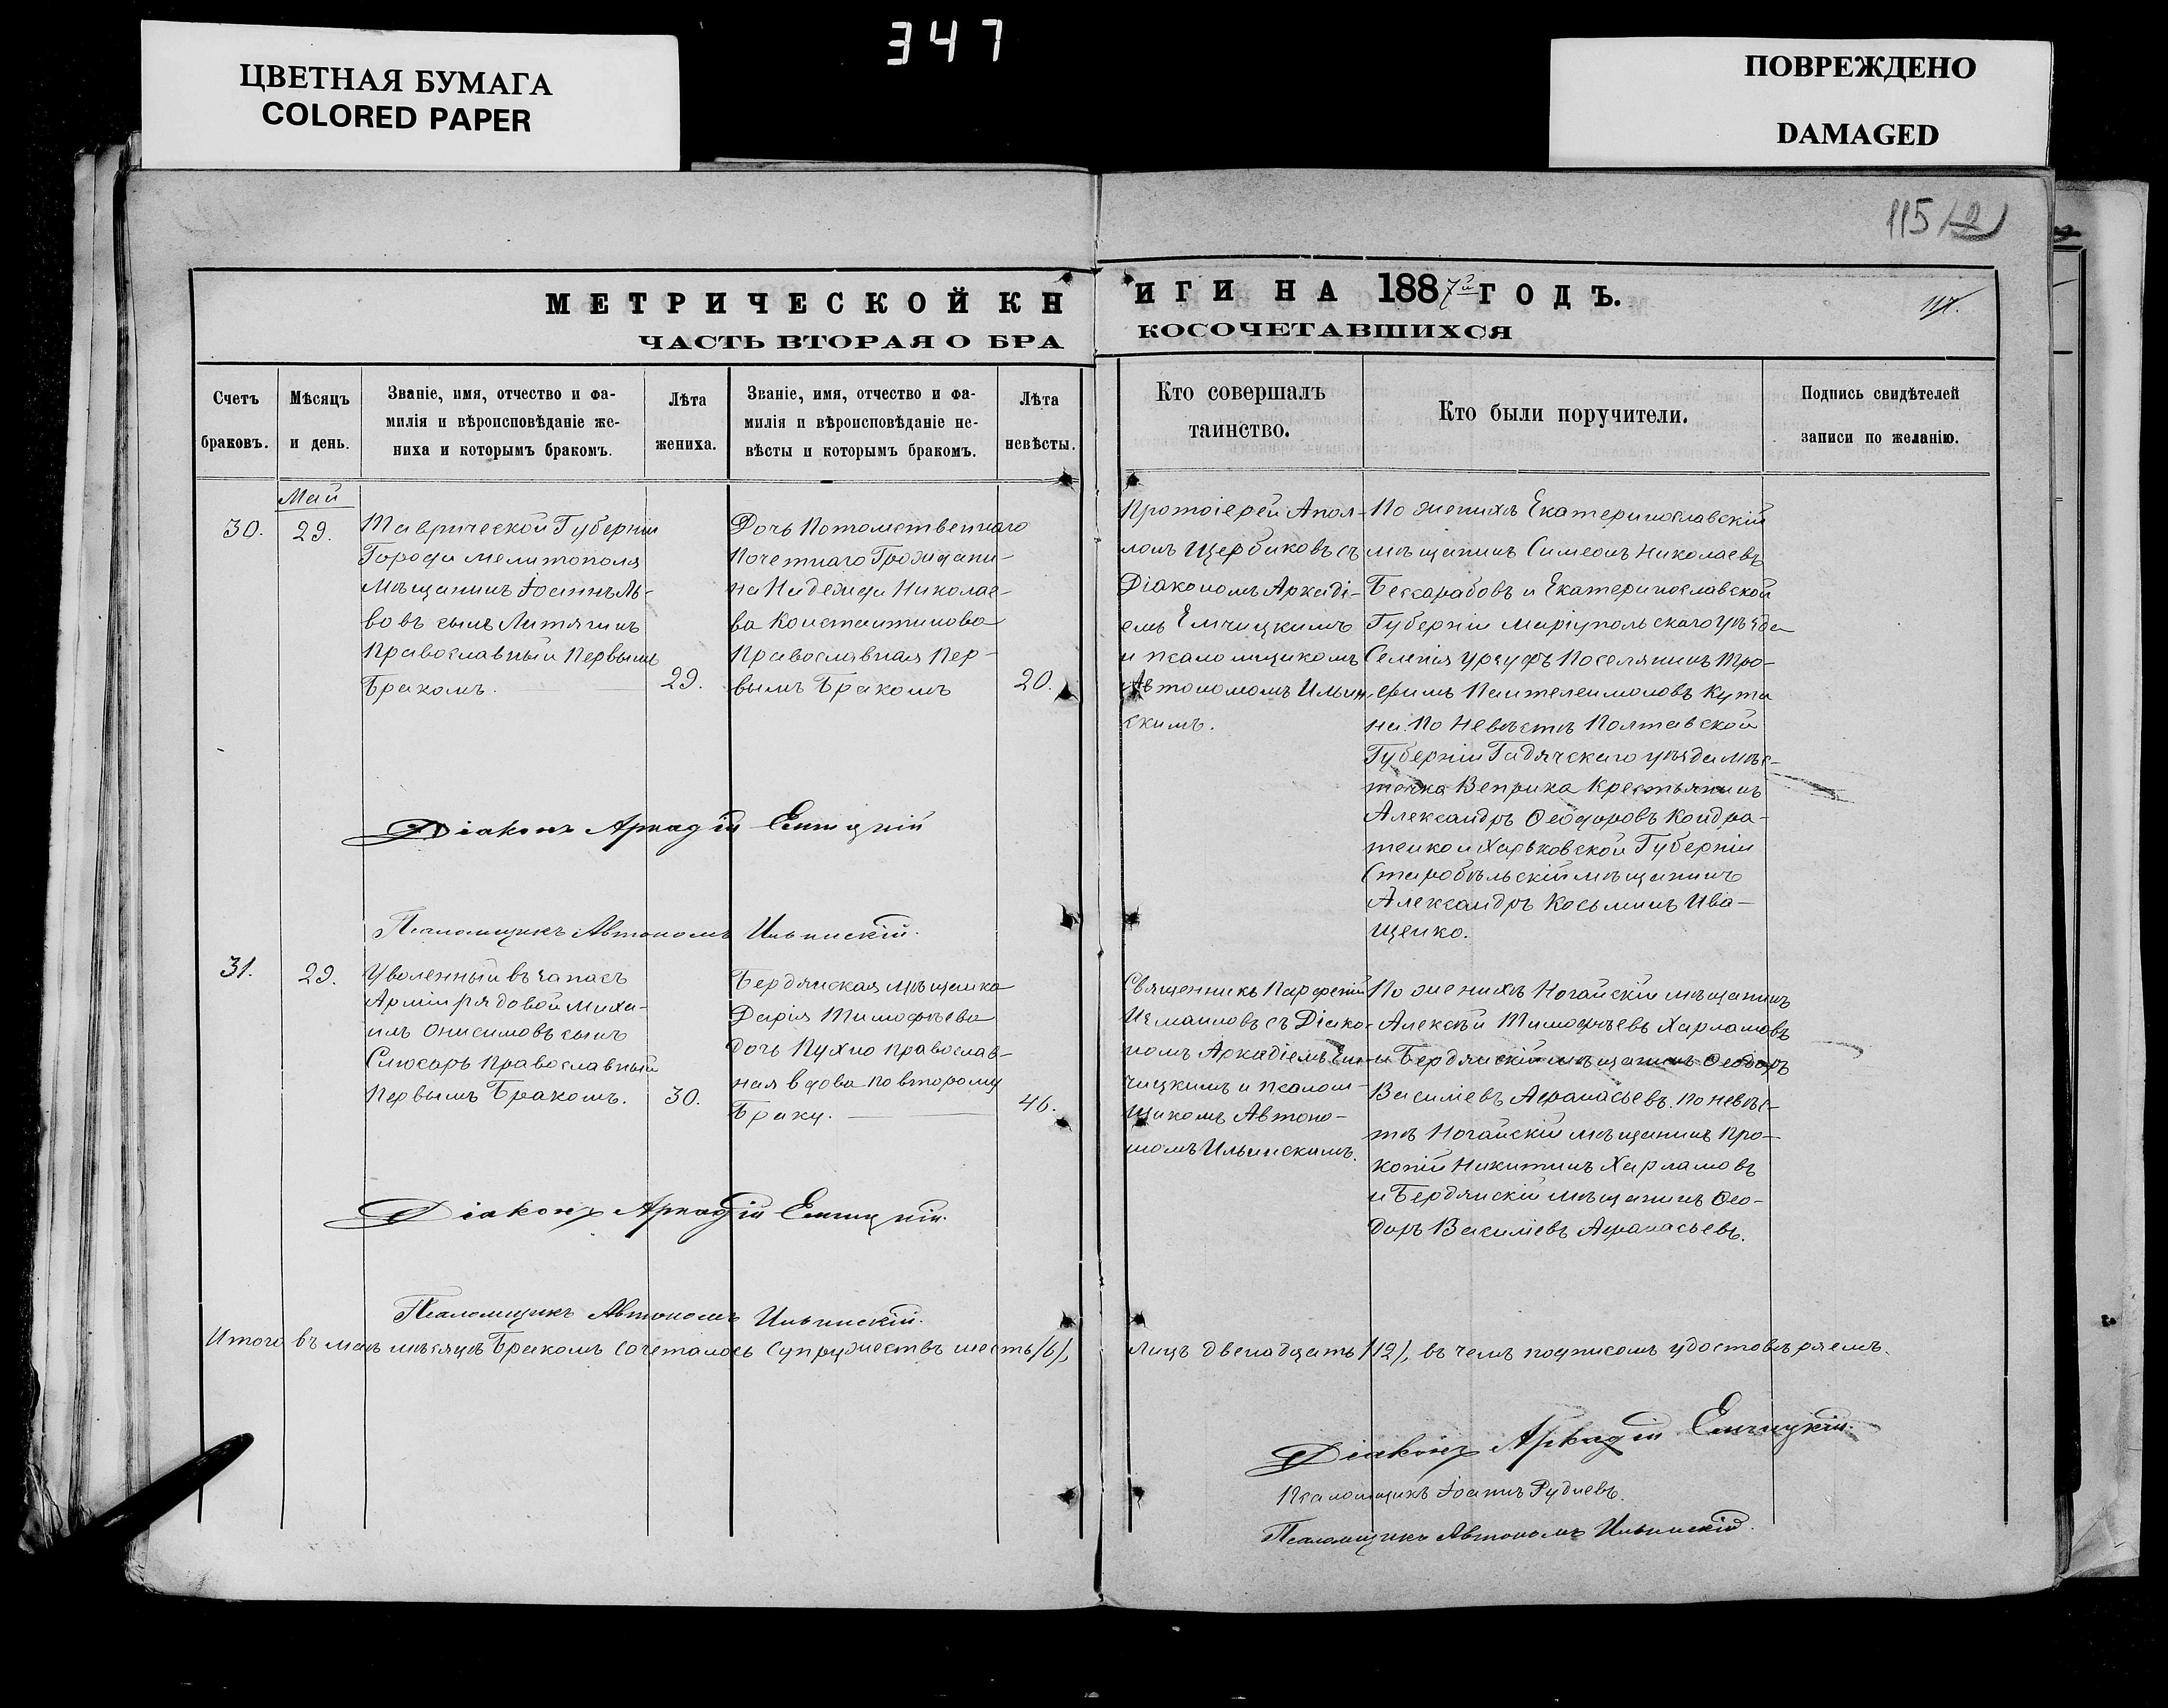 347
ЦВЕТНАЯ БУМАГА
COLORED PAPER
ПОВРЕЖДЕНО
DAMAGED
115
117.
МЕТРИЧЕСКОЙ КН
ИГИ НА 1887й ГОДЪ.
ЧАСТЬ ВТОРАЯ О БРА
КОСОЧЕТАВШИХСЯ
Счетъ
браковъ.
Мѣсяцъ
и день.
Званіе, имя, отчество и фа-
милія и вѣроисповѣданіе же-
ниха и которымъ бракомъ.
Лѣта
жениха.
Званіе, имя, отчество и фа-
милія и вѣроисповѣданіе не-
вѣсты и которымъ бракомъ.
Лѣта
невѣсты.
Кто совершалъ
таинство.
Кто были поручители.
Подпись свидѣтелей
записи по желанію.
Май
30.
29.
Таврической Губерніи
Города Мелитополя
Мѣщанинъ Іоаннъ Ль-
вовъ сынъ Литягинъ
Православный Первымъ
Бракомъ.
29.
Дочь Потомственнаго
Почетнаго Граждани-
на Надежда Николае-
ва Константинова
Православная Пер-
вымъ Бракомъ
20.
Протоіерей Апол-
лонъ Щербаковъ съ
Діакономъ Аркаді-
емъ Емчицкимъ
и псаломщикомъ
Автономомъ Ильин-
скимъ.
По женихѣ Екатеринославскій
мѣщанинъ Симеонъ Николаевъ
Бессарабовъ и Екатеринославской
Губерніи Маріупольскаго уѣзда
Селенія Урзуфъ Поселянинъ Тро-
фимъ Пантелеимоновъ Кута
на. По Невѣстѣ Полтавской
Губерніи Гадячскаго уѣзда мѣс-
течка Веприка Крестьянинъ
Александръ Феодоровъ Кондра-
тенко и Харьковской Губерніи
Старобѣльскій мѣщанинъ
Александръ Косьминъ Ива-
щенко.
Діаконъ Аркадій Емчицкій
Псаломщикъ Автономъ Ильинскій.
31.
29.
Уволенный въ запасъ
Арміи рядовой Миха-
илъ Онисимовъ сынъ
Слюсарь Православный
Первымъ Бракомъ.
30.
Бердянская мѣщанка
Дарія Тимофѣева
дочь Пухно православ-
ная вдова по второму
Браку.
46.
Священникъ Парфеній
Измаиловъ съ Діако-
номъ Аркадіемъ Ем-
чицкимъ и псалом-
щикомъ Автоно-
момъ Ильинскимъ.
По женихѣ Ногайскій мѣщанинъ
Алексѣй Тимофѣевъ Харламовъ
и Бердянскій мѣщанинъ Феодоръ
Василіевъ Афанасьевъ. По невѣс-
тѣ Ногайскій мѣщанинъ Про-
копій Никитинъ Харламовъ
и Бердянскій мѣщанинъ Фео-
доръ Василіевъ Афанасьевъ.
Діаконъ Аркадій Емчицкій.
Псаломщикъ Автономъ Ильинскій.
Итого въ маѣ мѣсяцѣ Бракомъ сочеталось супружествъ шесть /6/,
лицъ двенадцать /12/, въ чемъ подписомъ удостовѣряемъ.
Діаконъ Аркадій Емчицкій.
Псаломщикъ Іоаннъ Рудневъ.
Псаломщикъ Автономъ Ильинскій.